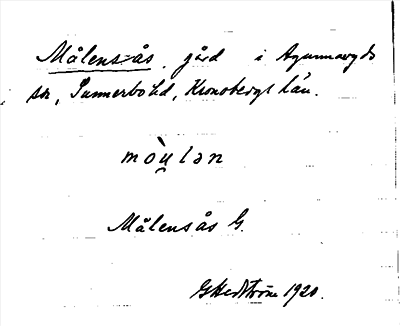 Målens-ås, gård i Agunnaryds
sn, Sunnerbo hd, Kronobergs län.
mòu̯lən
Målensås G.
G Hedström 1920.